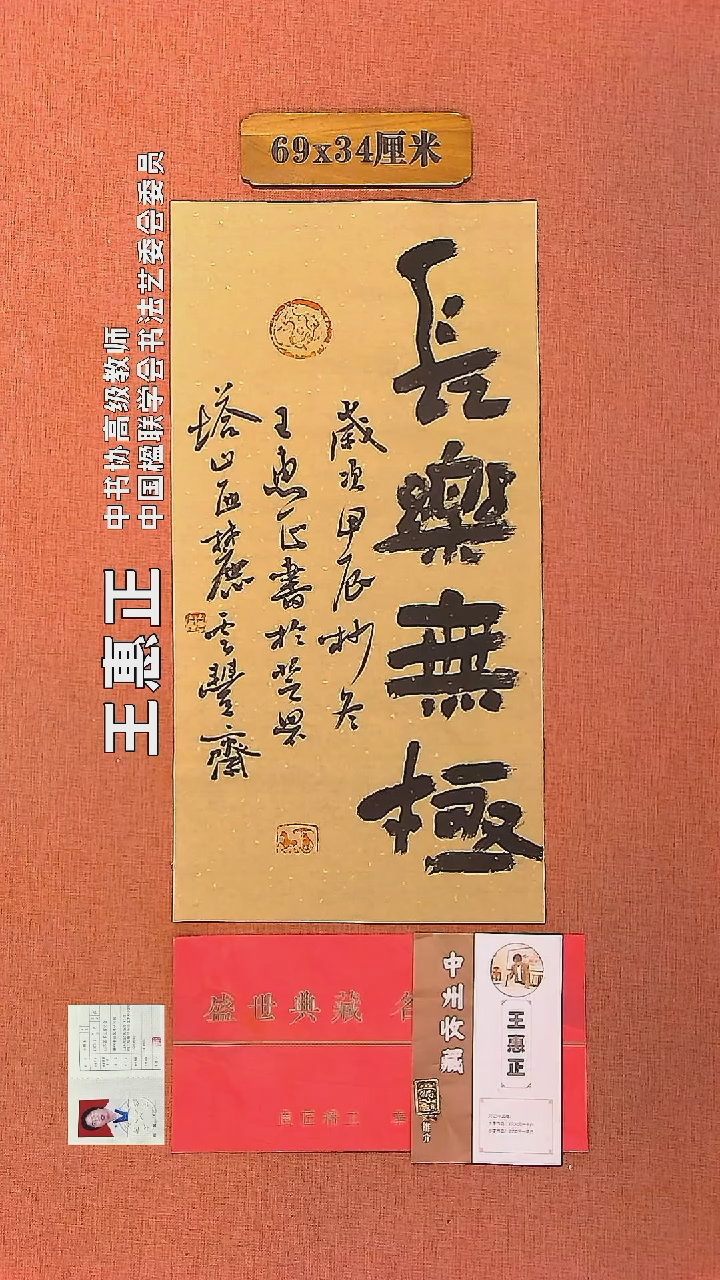 69x34厘米
長樂無極
歲次甲辰杪冬
王惠正書於芝罘
塔山西麓雲豐齋
中书协高级教师
中国楹联学会书法艺委会委员
王惠正
盛世典藏
中州收藏
王惠正